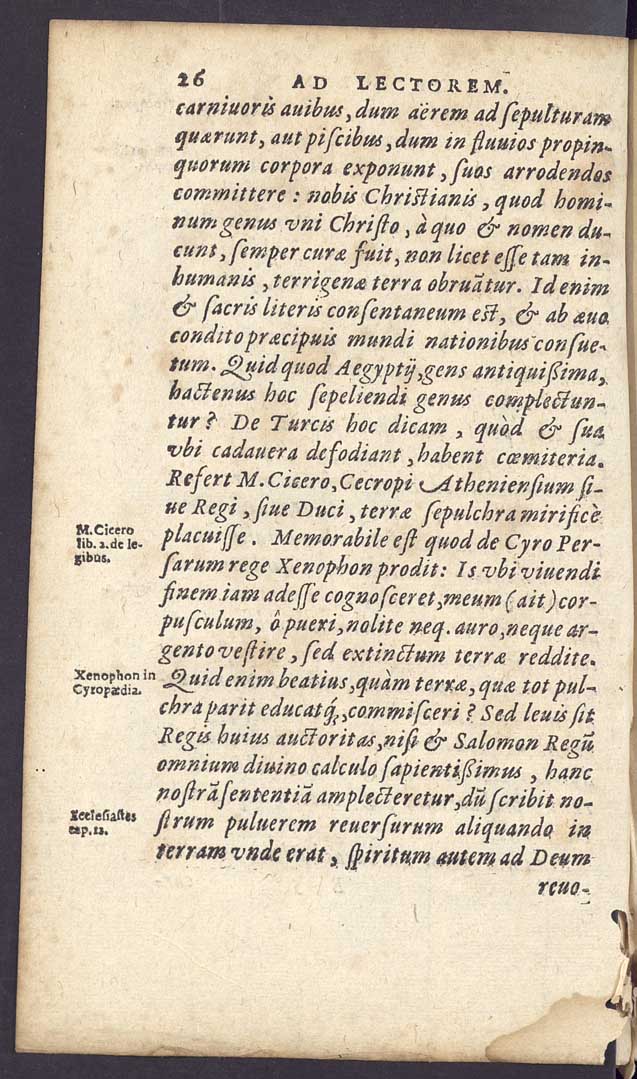 26 AD LECTOREM.
carniuoris auibus, dum aërem ad ſepulturam
quærunt, aut piſcibus, dum in fluuios propin-
quorum corpora exponunt, ſuos arrodendos
committere: nobis Chriſtianis, quod homi-
num genus vni Chriſto, à quo & nomen du-
cunt, ſemper curæ fuit, non licet eſſe tam in-
humanis, terrigenæ terra obruãtur. Id enim
& ſacris literis conſentaneum eſt, & ab æuo
condito præcipuis mundi nationibus conſue-
tum. Quid quod Aegyptij, gens antiquißima,
hactenus hoc ſepeliendi genus complectun-
tur? De Turcis hoc dicam, quòd & ſua
vbi cadauera defodiant, habent cœmiteria.
Refert M. Cicero, Cecropi Athenienſium ſi-
ue Regi, ſiue Duci, terræ ſepulchra mirificè
M. Cicero
lib. 2. de le-
gibus.
placuiſſe. Memorabile eſt quod de Cyro Per-
ſarum rege Xenophon prodit: Is vbi viuendi
finem iam adeſſe cognoſceret, meum (ait) cor-
puſculum, ô pueri, nolite neq. auro, neque ar-
gento veſtire, ſed extinctum terræ reddite.
Xenophon in
Cyropædia.
Quid enim beatius, quàm terræ, quæ tot pul-
chra parit educatq́, commiſceri? Sed leuis ſit
Regis huius auctoritas, niſi & Salomon Regũ
omnium diuino calculo ſapientißimus, hanc
noſtrã ſententiã amplecteretur, dũ ſcribit no-
Eccleſiaſtes
cap. 12.
ſtrum puluerem reuerſurum aliquando in
terram vnde erat, ſpiritum autem ad Deum
reuo-